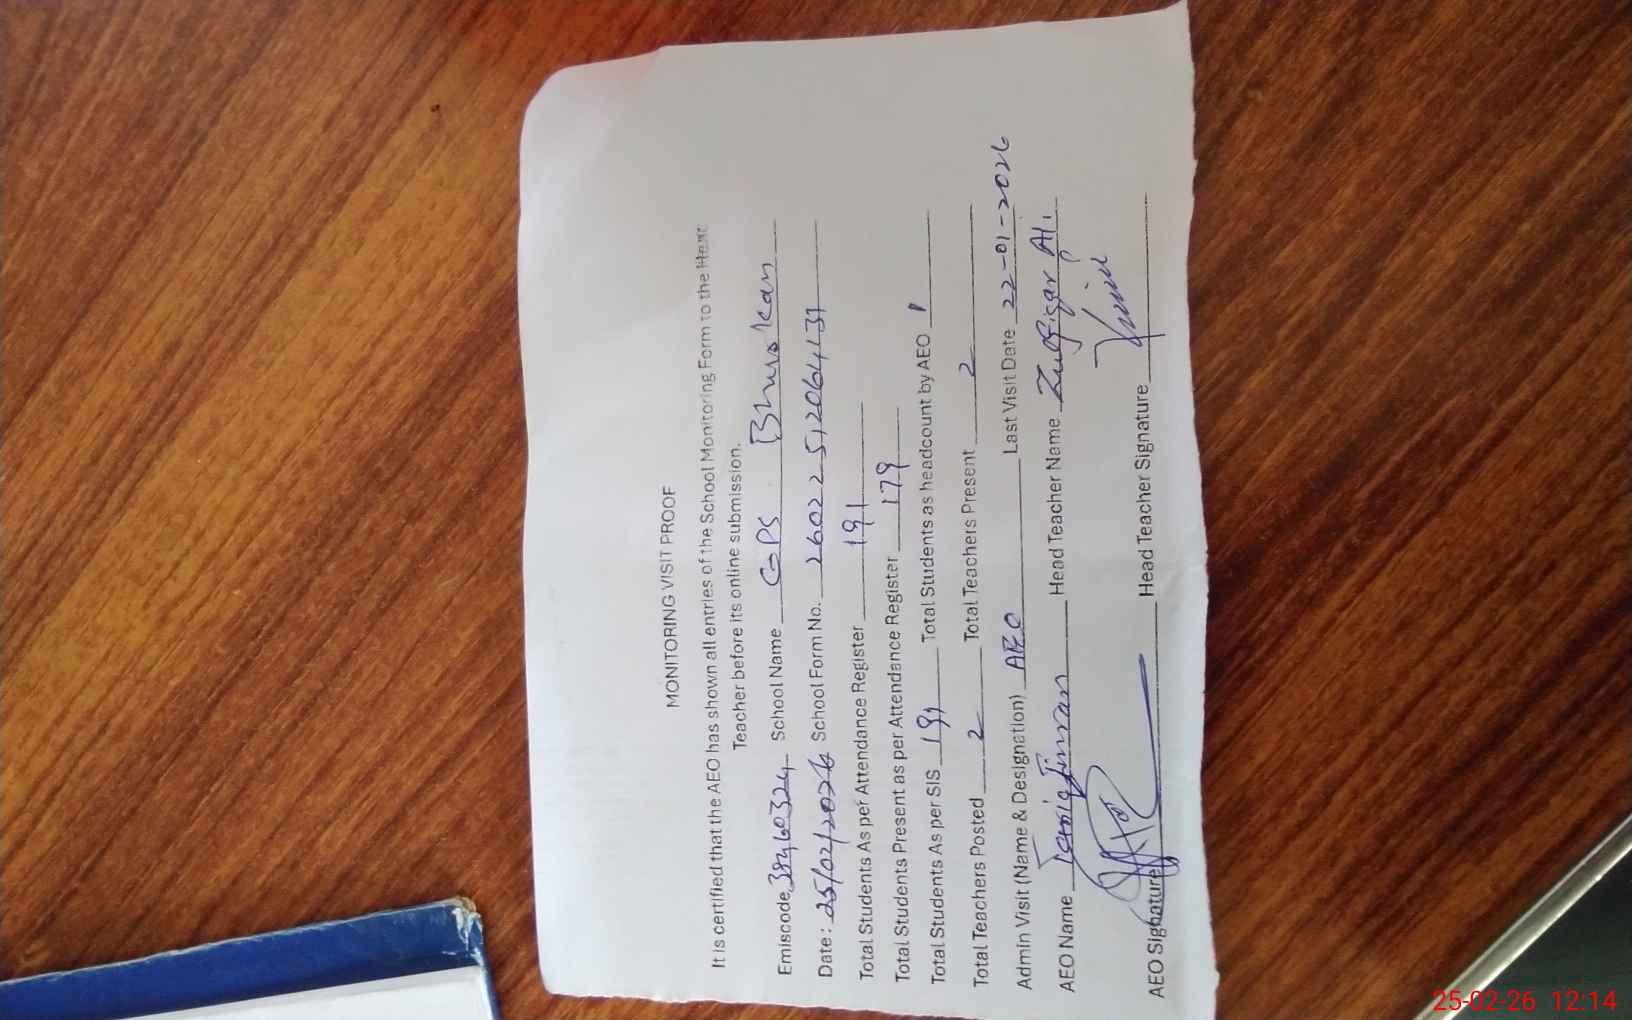 MONITORING VISIT PROOF
It is certified that the AEO has shown all entries of the School Monitoring Form to the Head
Teacher before its online submission.
Emiscode 38460324 School Name GPS
Date: 25/02/2026 School Form No. 2602251206413
Total Students As per Attendance Register 191
Total Students Present as per Attendance Register 179
Total Students As per SIS 191 Total Students as headcount by AEO
Total Teachers Posted 2 Total Teachers Present 2
Admin Visit (Name & Designation) AEO Last Visit Date 22-01-2026
AEO Name Head Teacher Name Zulfiqar Ali
AEO Signature Head Teacher Signature
25-02-26 12:14